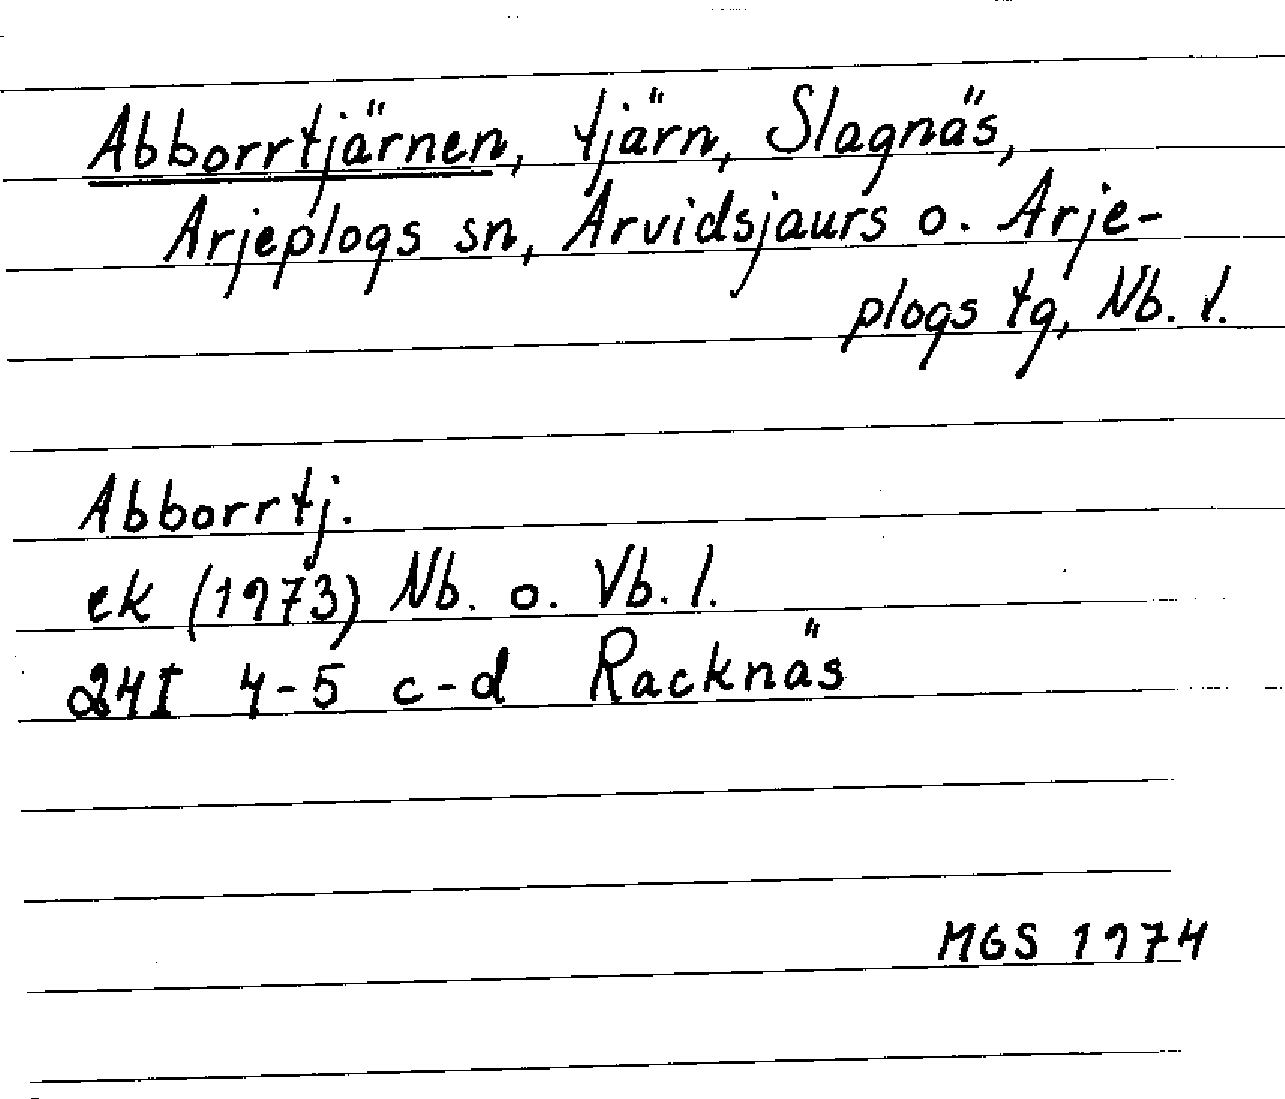 Abborrtjärnen, tjärn, Slagnäs,
Arjeplogs sn, Arvidsjaurs o. Arje-
plogs tg, Nb. l.
Abborrtj.
ek (1973) Nb. o. Vb. l.
24I 4-5 c-d Racknäs
MGS 1974